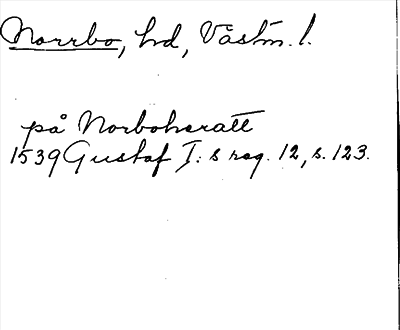 Norrbo, hd, Västm. l.
på Norboheratt
1539 Gustaf I: s reg. 12, s. 123.